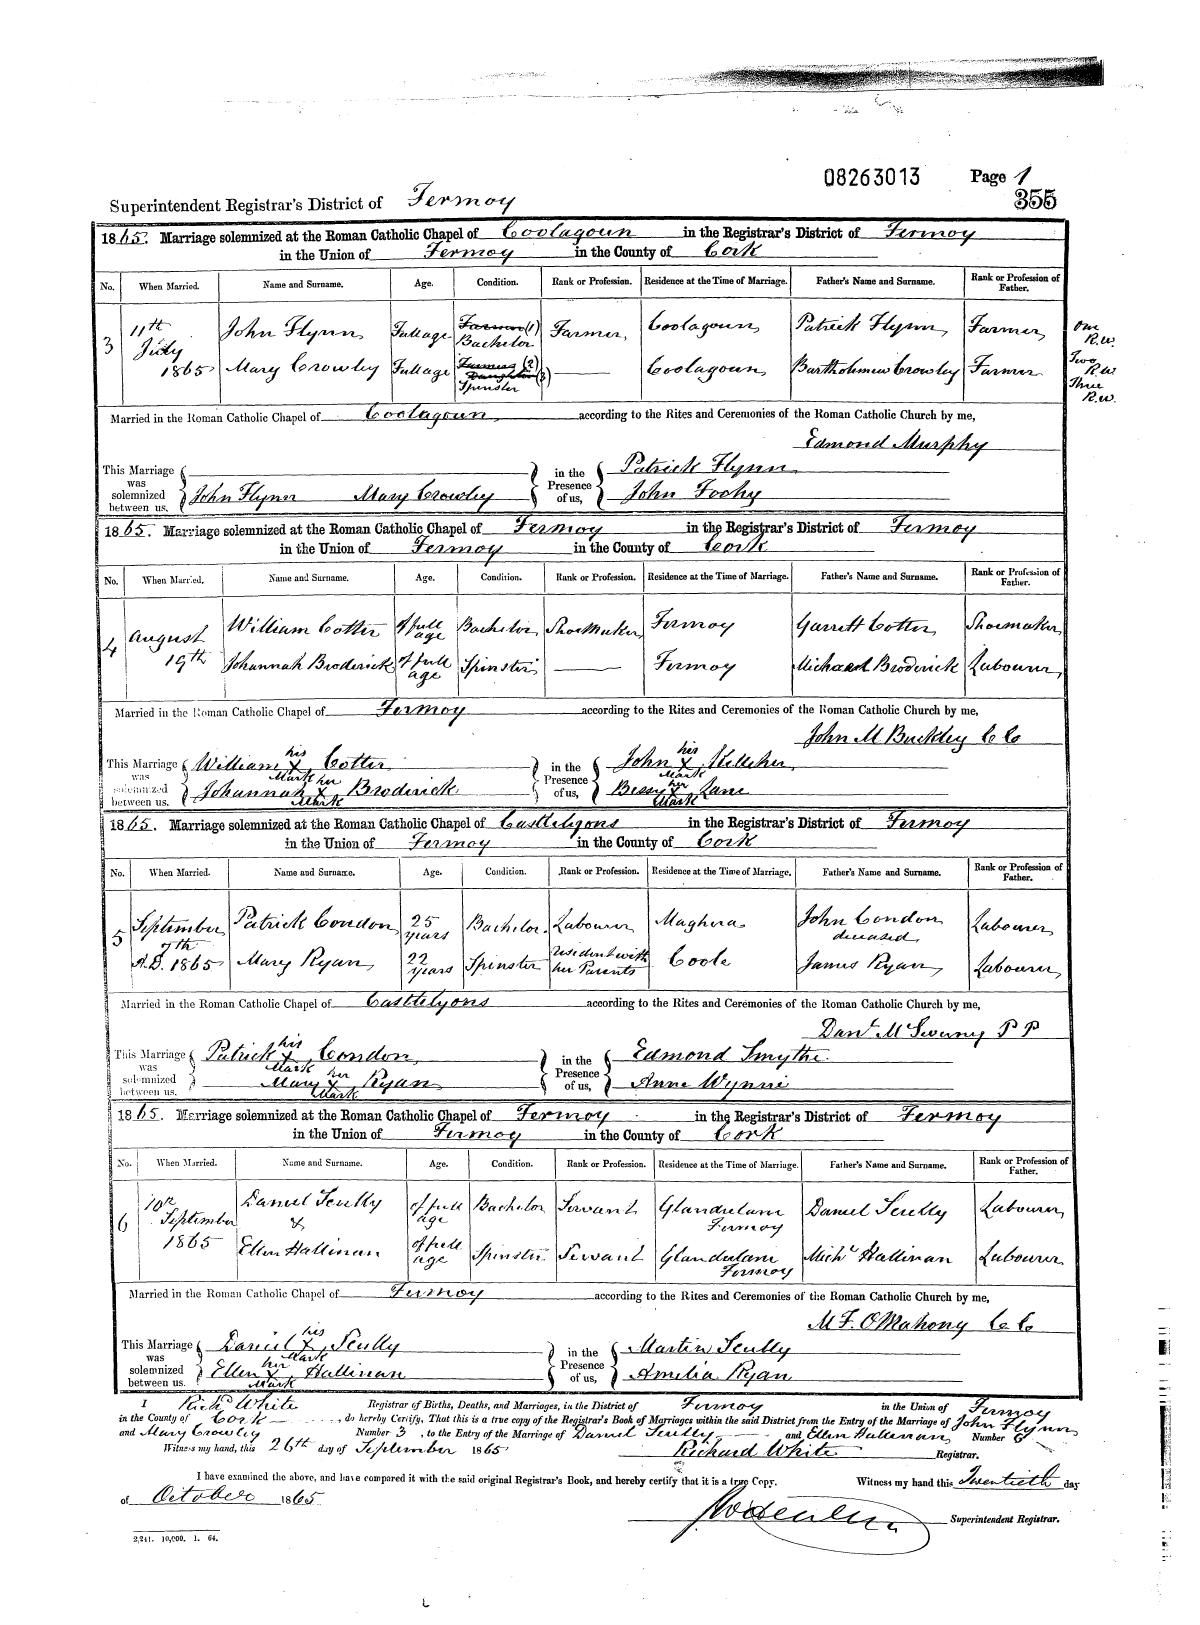 08263013 Page 1
355
Superintendent Registrar's District of Fermoy
1865. Marriage solemnized at the Roman Catholic Chapel of Coolagoun in the Registrar's District of Fermoy
in the Union of Fermoy in the County of Cork
No. When Married. Name and Surname. Age. Condition. Rank or Profession. Residence at the Time of Marriage. Father's Name and Surname. Rank or Profession of Father.
3 11th July 1865 John Flynn Full age Farmer (1) Bachelor Farmer Coolagoun Patrick Flynn Farmer
Mary Crowley Full age Farmers (2) Daughter (3) Spinster — Coolagoun Bartholmew Crowley Farmer
One R.W.
Two R.W
Three R.W.
Married in the Roman Catholic Chapel of Coolagoun according to the Rites and Ceremonies of the Roman Catholic Church by me,
Edmond Murphy
This Marriage was solemnized between us, John Flynn Mary Crowley in the Presence of us, Patrick Flynn
John Foohy
1865. Marriage solemnized at the Roman Catholic Chapel of Fermoy in the Registrar's District of Fermoy
in the Union of Fermoy in the County of Cork
No. When Married. Name and Surname. Age. Condition. Rank or Profession. Residence at the Time of Marriage. Father's Name and Surname. Rank or Profession of Father.
4 August 19th William Cotter of full age Bachelor Shoemaker Fermoy Garrett Cotter Shoemaker
Johannah Broderick of full age Spinster — Fermoy Michael Broderick Labourer
Married in the Roman Catholic Chapel of Fermoy according to the Rites and Ceremonies of the Roman Catholic Church by me,
John M Buckley CC
This Marriage was solemnized between us, William his X Mark Cotter in the Presence of us, John his X Mark Kelleher
Johannah her X Mark Broderick Bessy her X Mark Lane
1865. Marriage solemnized at the Roman Catholic Chapel of Castlelyons in the Registrar's District of Fermoy
in the Union of Fermoy in the County of Cork
No. When Married. Name and Surname. Age. Condition. Rank or Profession. Residence at the Time of Marriage. Father's Name and Surname. Rank or Profession of Father.
5 September 7th A.D. 1865 Patrick Condon 25 years Bachelor Labourer Maghera John Condon deceased Labourer
Mary Ryan 22 years Spinster resident with her Parents Coole James Ryan Labourer
Married in the Roman Catholic Chapel of Castlelyons according to the Rites and Ceremonies of the Roman Catholic Church by me,
Danl. McSweeny P P
This Marriage was solemnized between us, Patrick his X Mark Condon in the Presence of us, Edmond Smythe
Mary her X Mark Ryan Anne Wynne
1865. Marriage solemnized at the Roman Catholic Chapel of Fermoy in the Registrar's District of Fermoy
in the Union of Fermoy in the County of Cork
No. When Married. Name and Surname. Age. Condition. Rank or Profession. Residence at the Time of Marriage. Father's Name and Surname. Rank or Profession of Father.
6 10th September 1865 Daniel Scully & of full age Bachelor Servant Glandulam Fermoy Daniel Scully Labourer
Ellen Hallinan of full age Spinster Servant Glandulam Fermoy Michl Hallinan Labourer
Married in the Roman Catholic Chapel of Fermoy according to the Rites and Ceremonies of the Roman Catholic Church by me,
M F. O'Mahony CC
This Marriage was solemnized between us, Daniel his X Mark Scully in the Presence of us, Martin Scully
Ellen her X Mark Hallinan Amelia Ryan
I Richd White Registrar of Births, Deaths, and Marriages, in the District of Fermoy in the Union of Fermoy
in the County of Cork, do hereby Certify, That this is a true copy of the Registrar's Book of Marriages within the said District from the Entry of the Marriage of John Flynn
and Mary Crowley Number 3, to the Entry of the Marriage of Daniel Scully and Ellen Hallinan Number 6
Witness my hand, this 26th day of September 1865 Richard White Registrar.
I have examined the above, and have compared it with the said original Registrar's Book, and hereby certify that it is a true Copy. Witness my hand this Twentieth day
of October 1865
Superintendent Registrar.
2,241. 10,000. 1. 64.